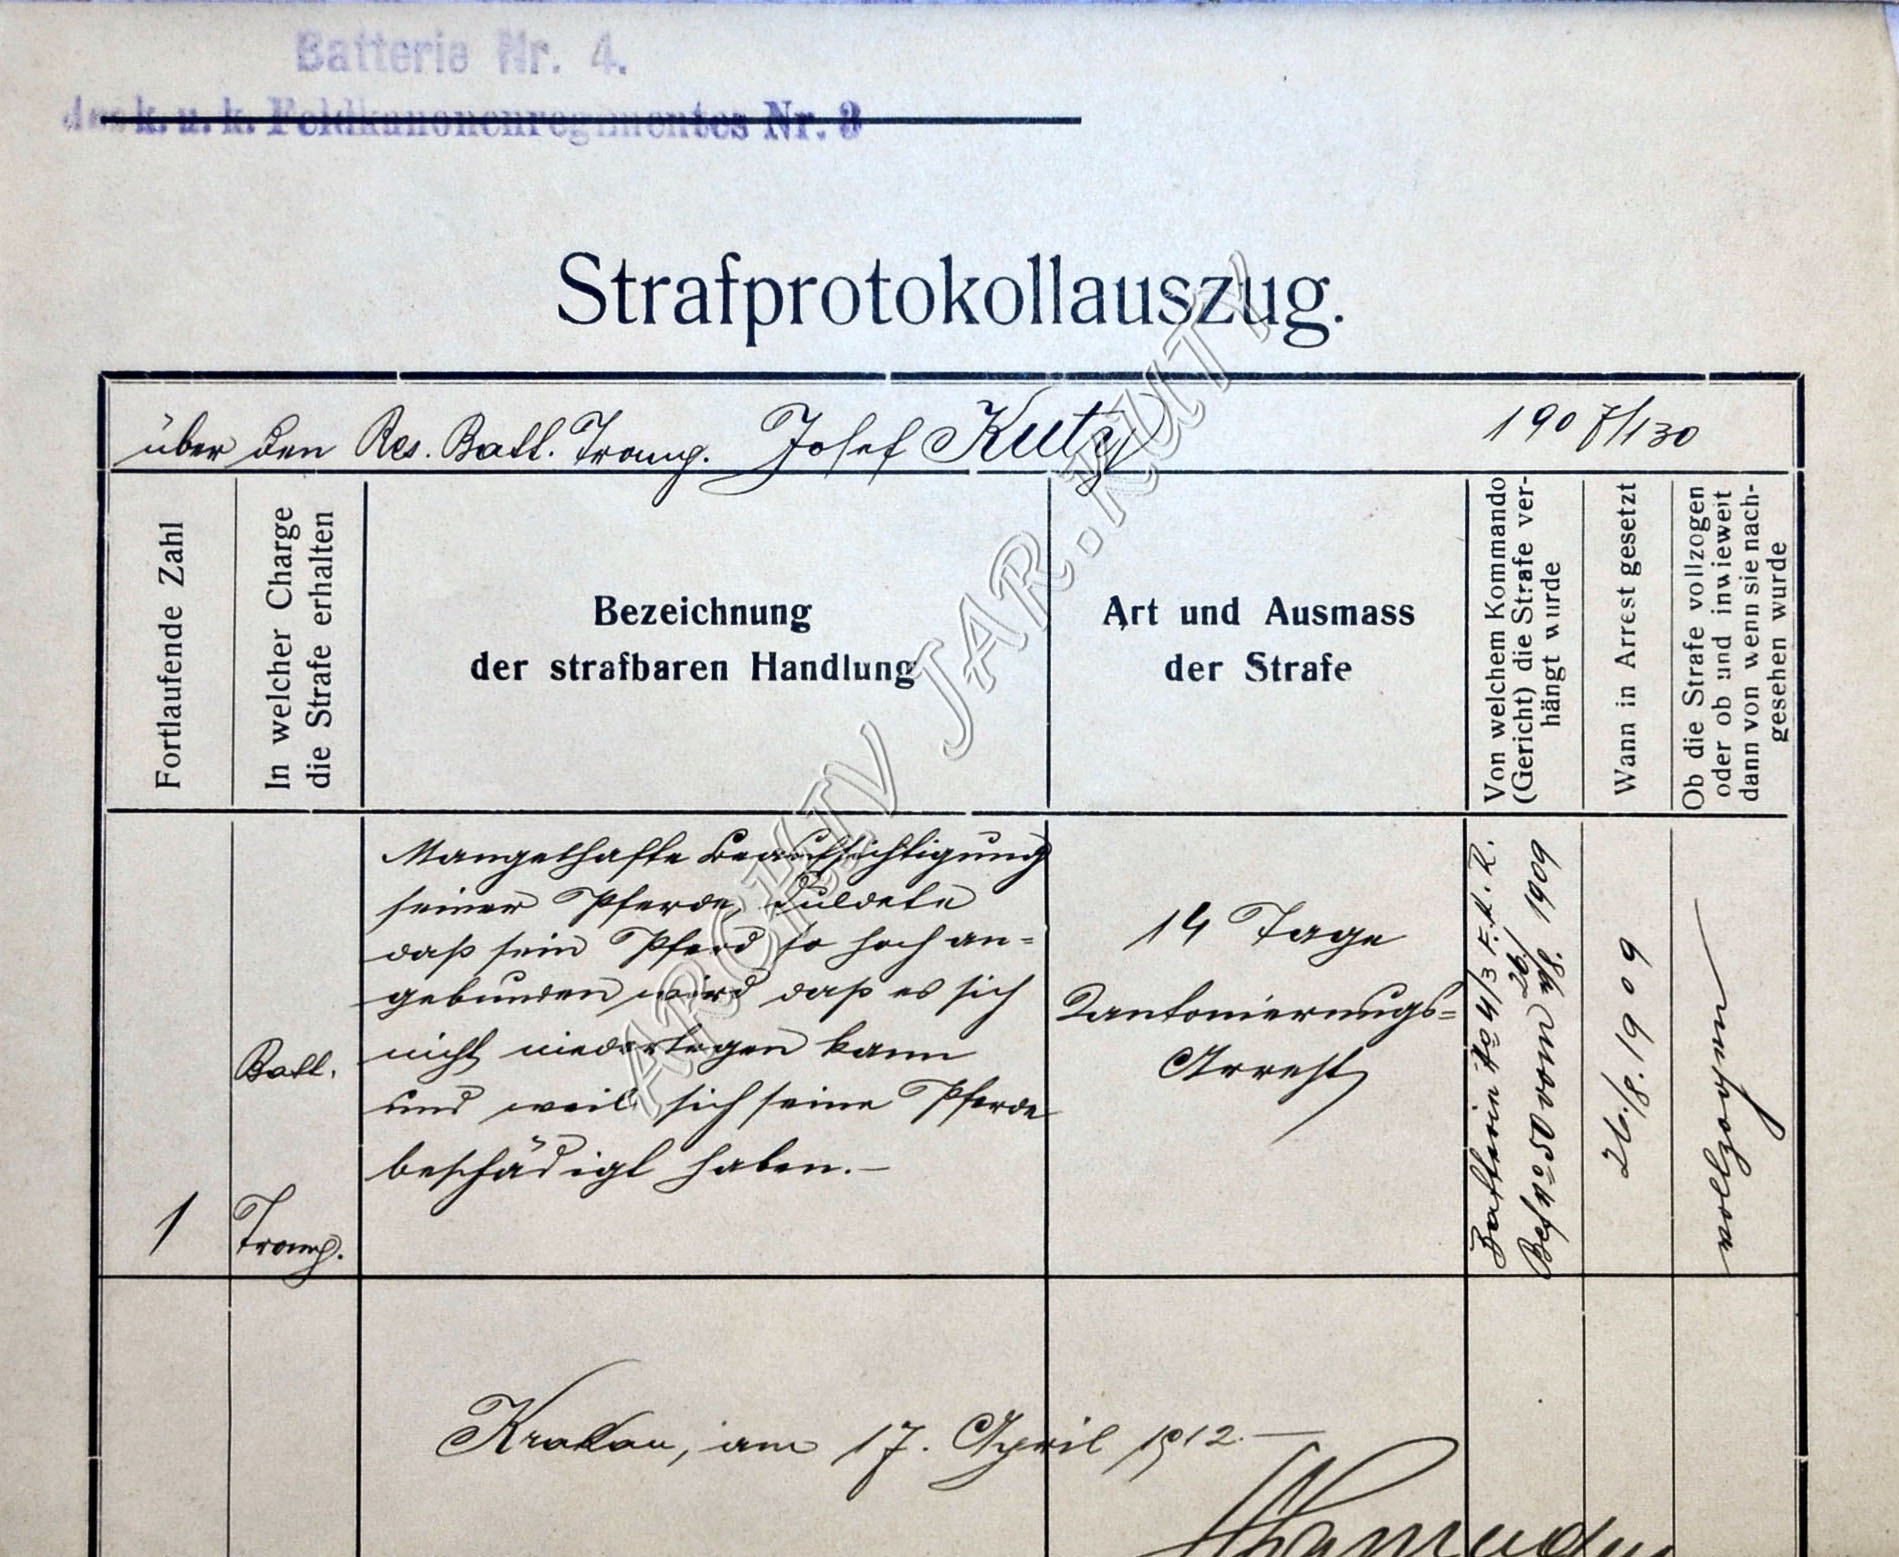 Batterie Nr. 4.
des k. u. k. Feldkanonenregimentes Nr. 3
Strafprotokollauszug.
über den Res. Batt. Tromp. Josef Kutz 1907/130
Fortlaufende Zahl
In welcher Charge
die Strafe erhalten
Bezeichnung
der strafbaren Handlung
Art und Ausmass
der Strafe
Von welchem Kommando
(Gericht) die Strafe ver-
hängt wurde
Wann in Arrest gesetzt
Ob die Strafe vollzogen
oder ob und inwieweit
dann von wenn sie nach-
gesehen wurde
1
Batt.
Tromp.
Mangelhafte Beaufsichtigung
seiner Pferde, duldete
daß sein Pferd so hoch an=
gebunden wird daß es sich
nicht niederlegen kann
und weil sich seine Pferde
beschädigt haben.—
14 Tage
Kantonierungs=
Arrest
Batterie No 4/3 F.K.R.
Bef No 50 vom 26/8. 1909
26./8. 1909
vollzogen
Krakau, am 17. April 1912.—
ARCHIV JAR. KUTÝ